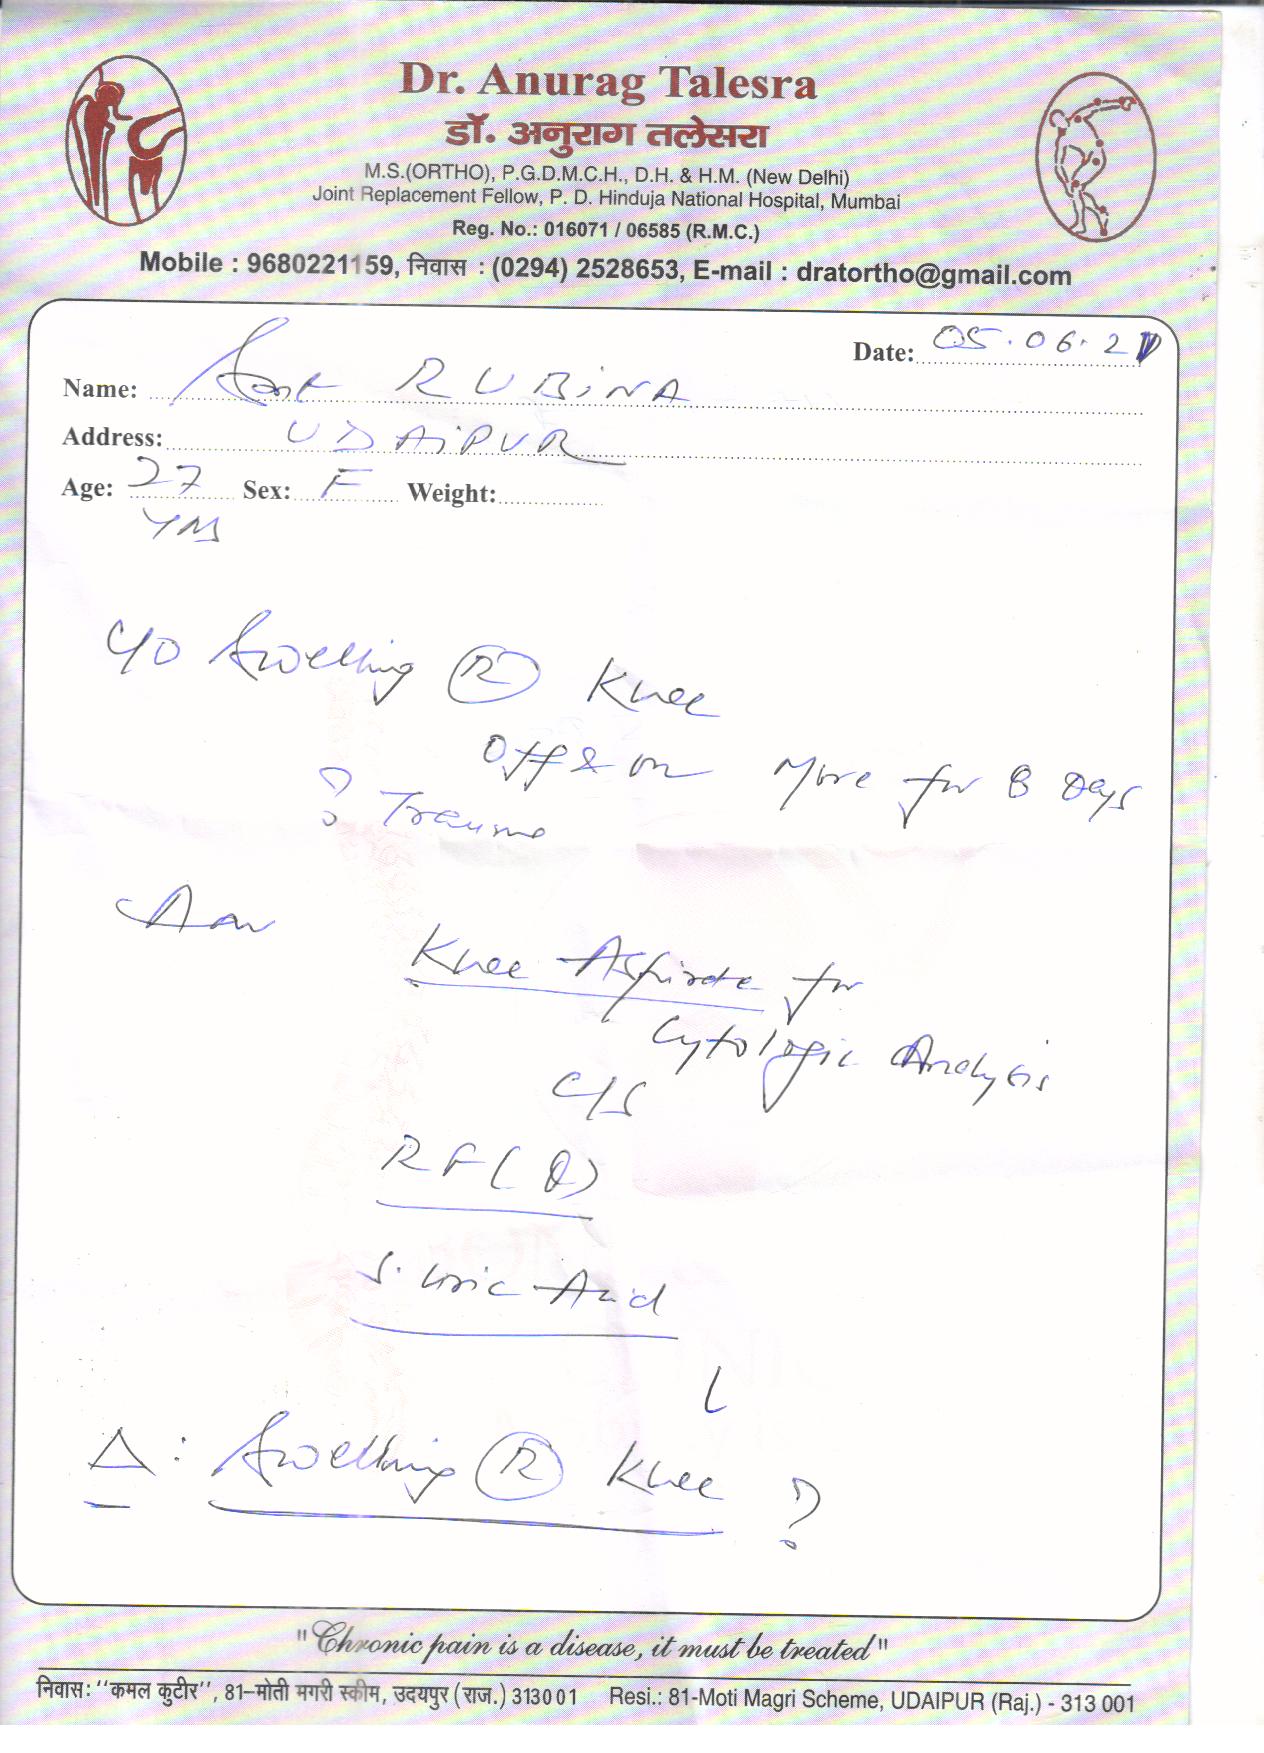 Dr. Anurag Talesra
डॉ. अनुराग तलेसरा
M.S.(ORTHO), P.G.D.M.C.H., D.H. & H.M. (New Delhi)
Joint Replacement Fellow, P. D. Hinduja National Hospital, Mumbai
Reg. No.: 016071 / 06585 (R.M.C.)
Mobile : 9680221159, निवास : (0294) 2528653, E-mail : dratortho@gmail.com
Date: 05.06.21
Name: RUBINA
Address: UDAIPUR
Age: 27 Sex: F Weight:
Yrs
C/O Swelling R Knee
Off & on More for 8 Days
? Trauma
Adv
Knee Aspirate for
Cytologic Analysis
C/S
RF (Q)
S. Uric Acid
Δ: Swelling R Knee ?
"Chronic pain is a disease, it must be treated"
निवास: "कमल कुटीर", 81-मोती मगरी स्कीम, उदयपुर (राज.) 313001 Resi.: 81-Moti Magri Scheme, UDAIPUR (Raj.) - 313 001